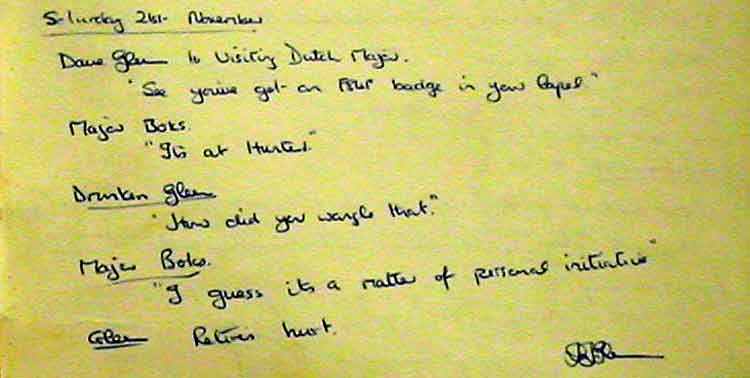 Saturday 21st November
Dave Glen to Visiting Dutch Major.
"See you've got an badge in your lapel"
Major Boks.
"Its at Hunted."
Drunken Glen
"How did you wangle that."
Major Boks.
"I guess its a matter of personal initiative"
Glen Retires hurt.